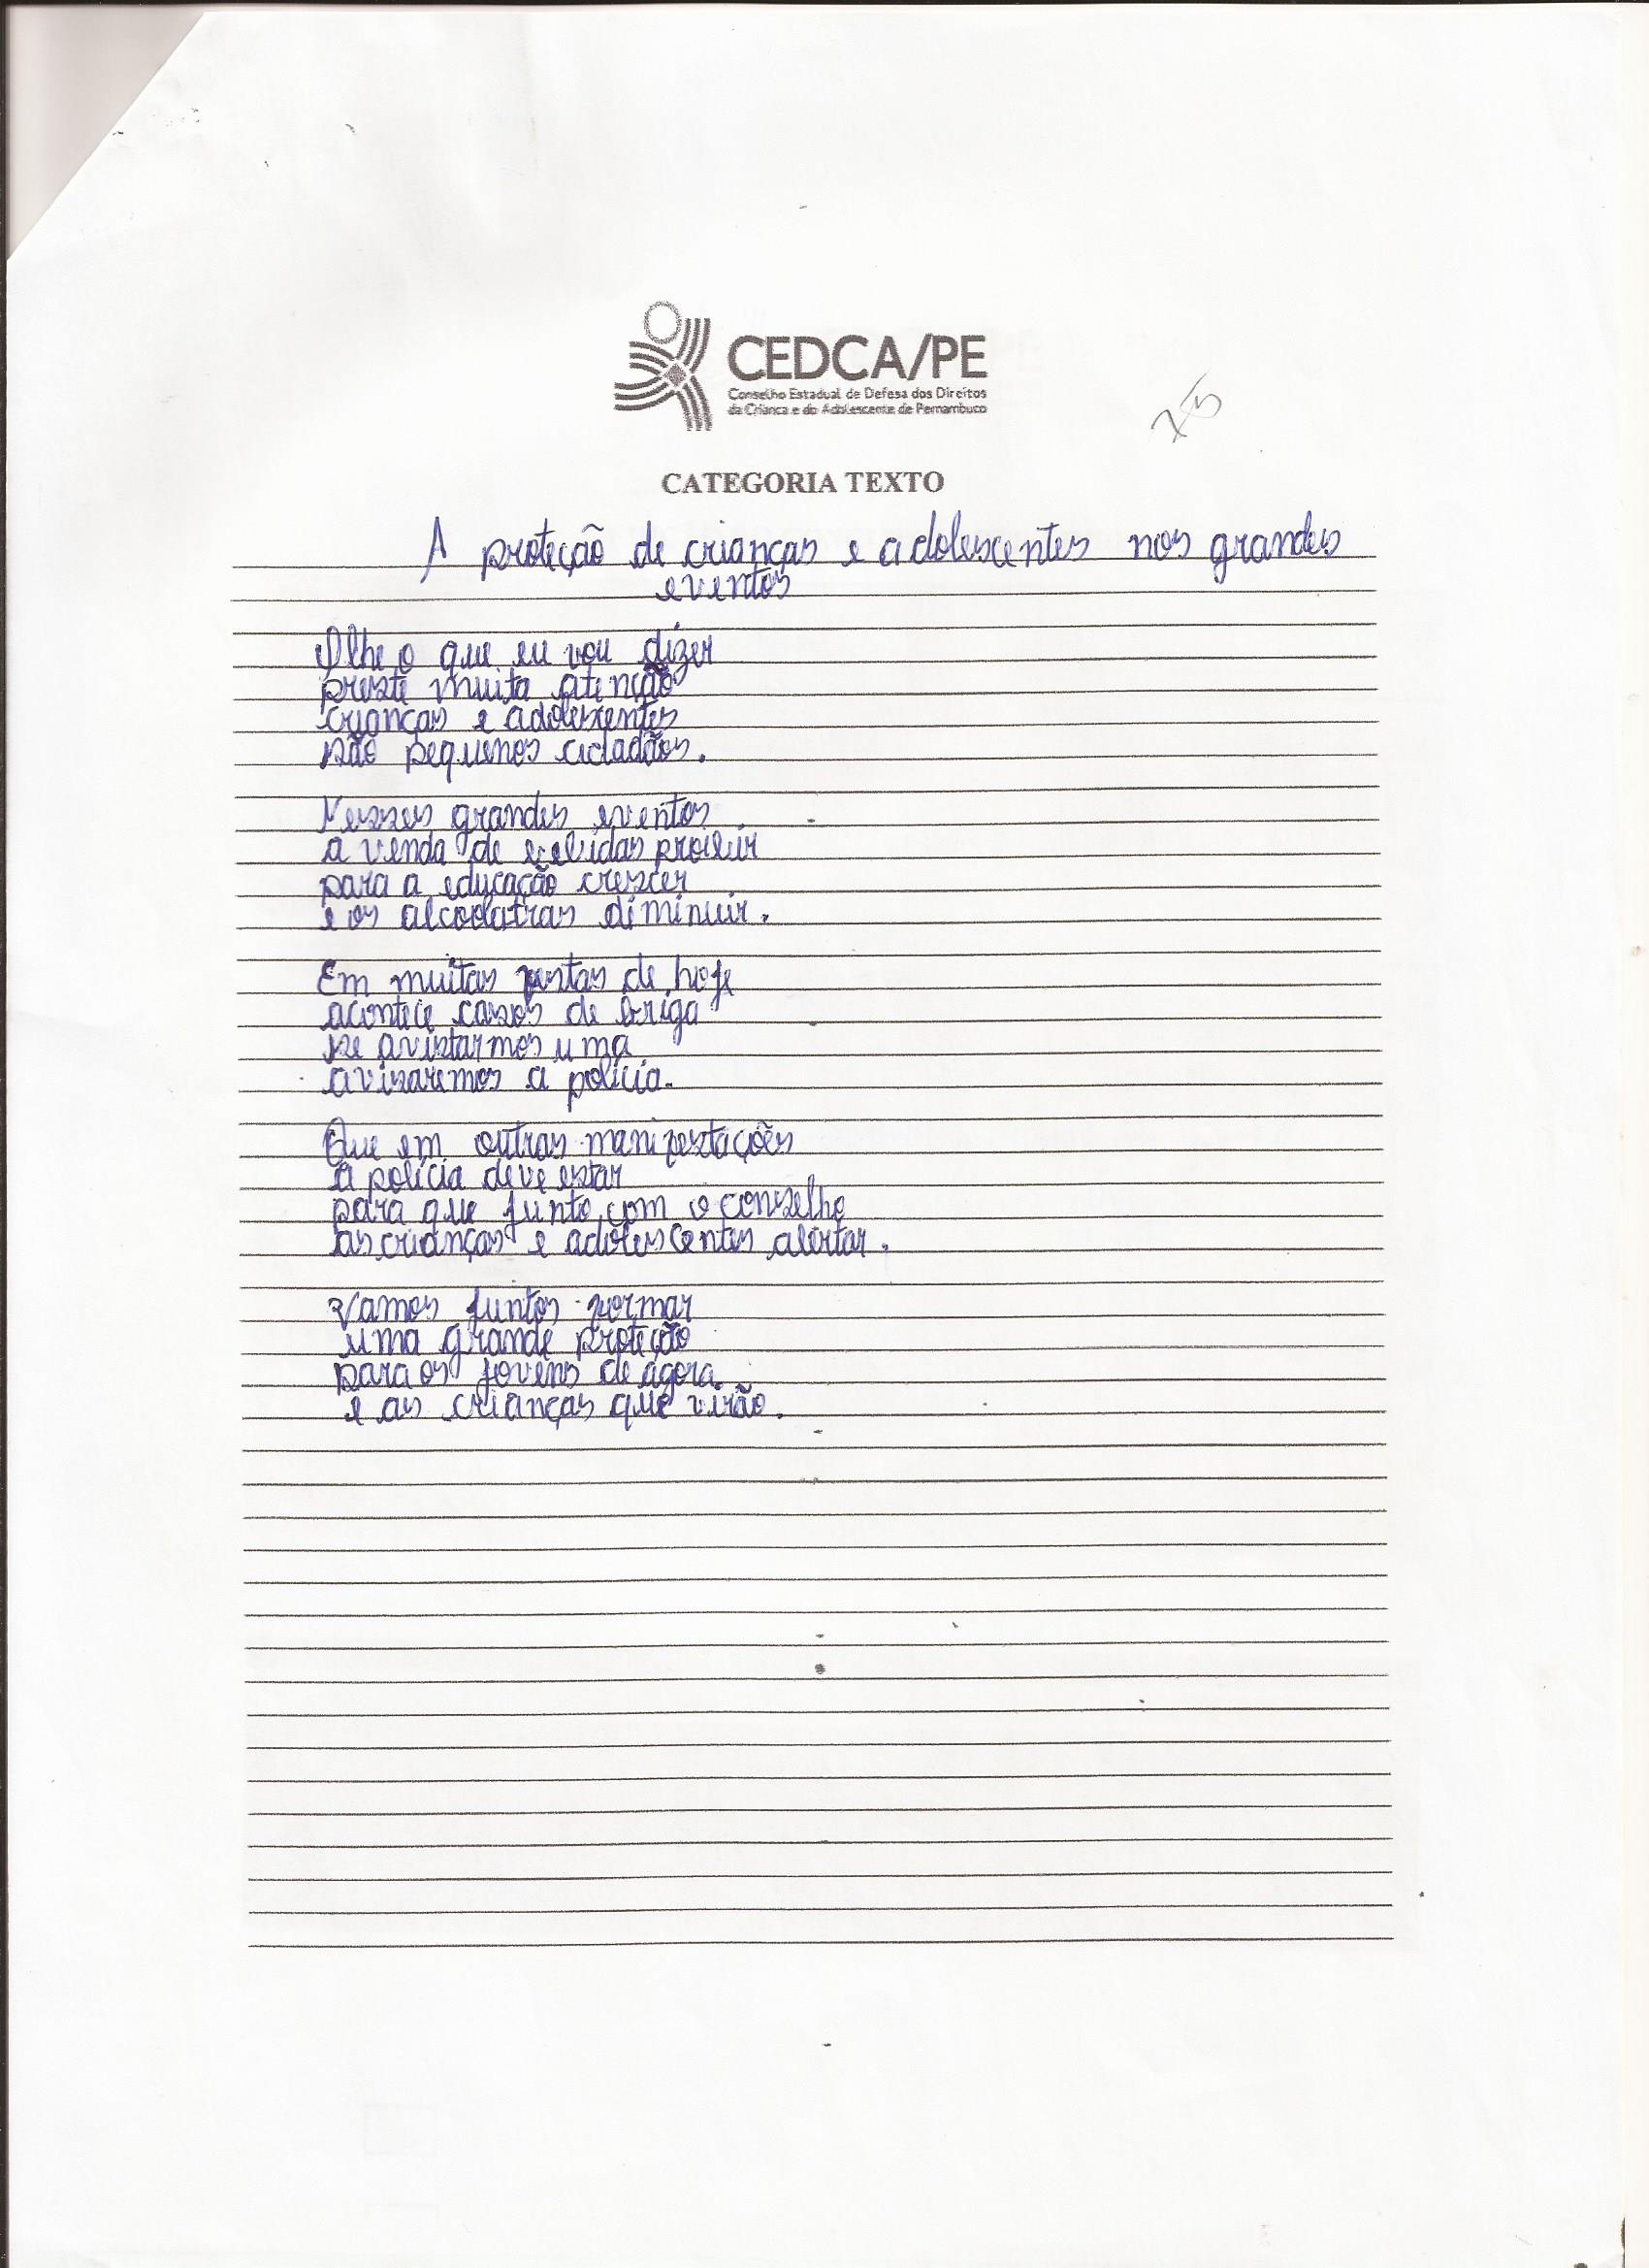 CEDCA/PE
Conselho Estadual de Defesa dos Direitos
da Criança e do Adolescente de Pernambuco
75
CATEGORIA TEXTO
A proteção de crianças e adolescentes nos grandes
eventos
Olhe o que eu vou dizer
preste muita atenção
crianças e adolescentes
são pequenos cidadãos.
Nesses grandes eventos
a venda de bebidas proibir
para a educação crescer
e os alcoolatras diminuir.
Em muitas festas de hoje
acontece casos de briga
se avistarmos uma
avisaremos a polícia.
Que em outras manifestações
a polícia deve estar
para que junto com o conselho
as crianças e adolescentes alertar.
Vamos juntos formar
uma grande proteção
para os jovens de agora
e as crianças que virão.